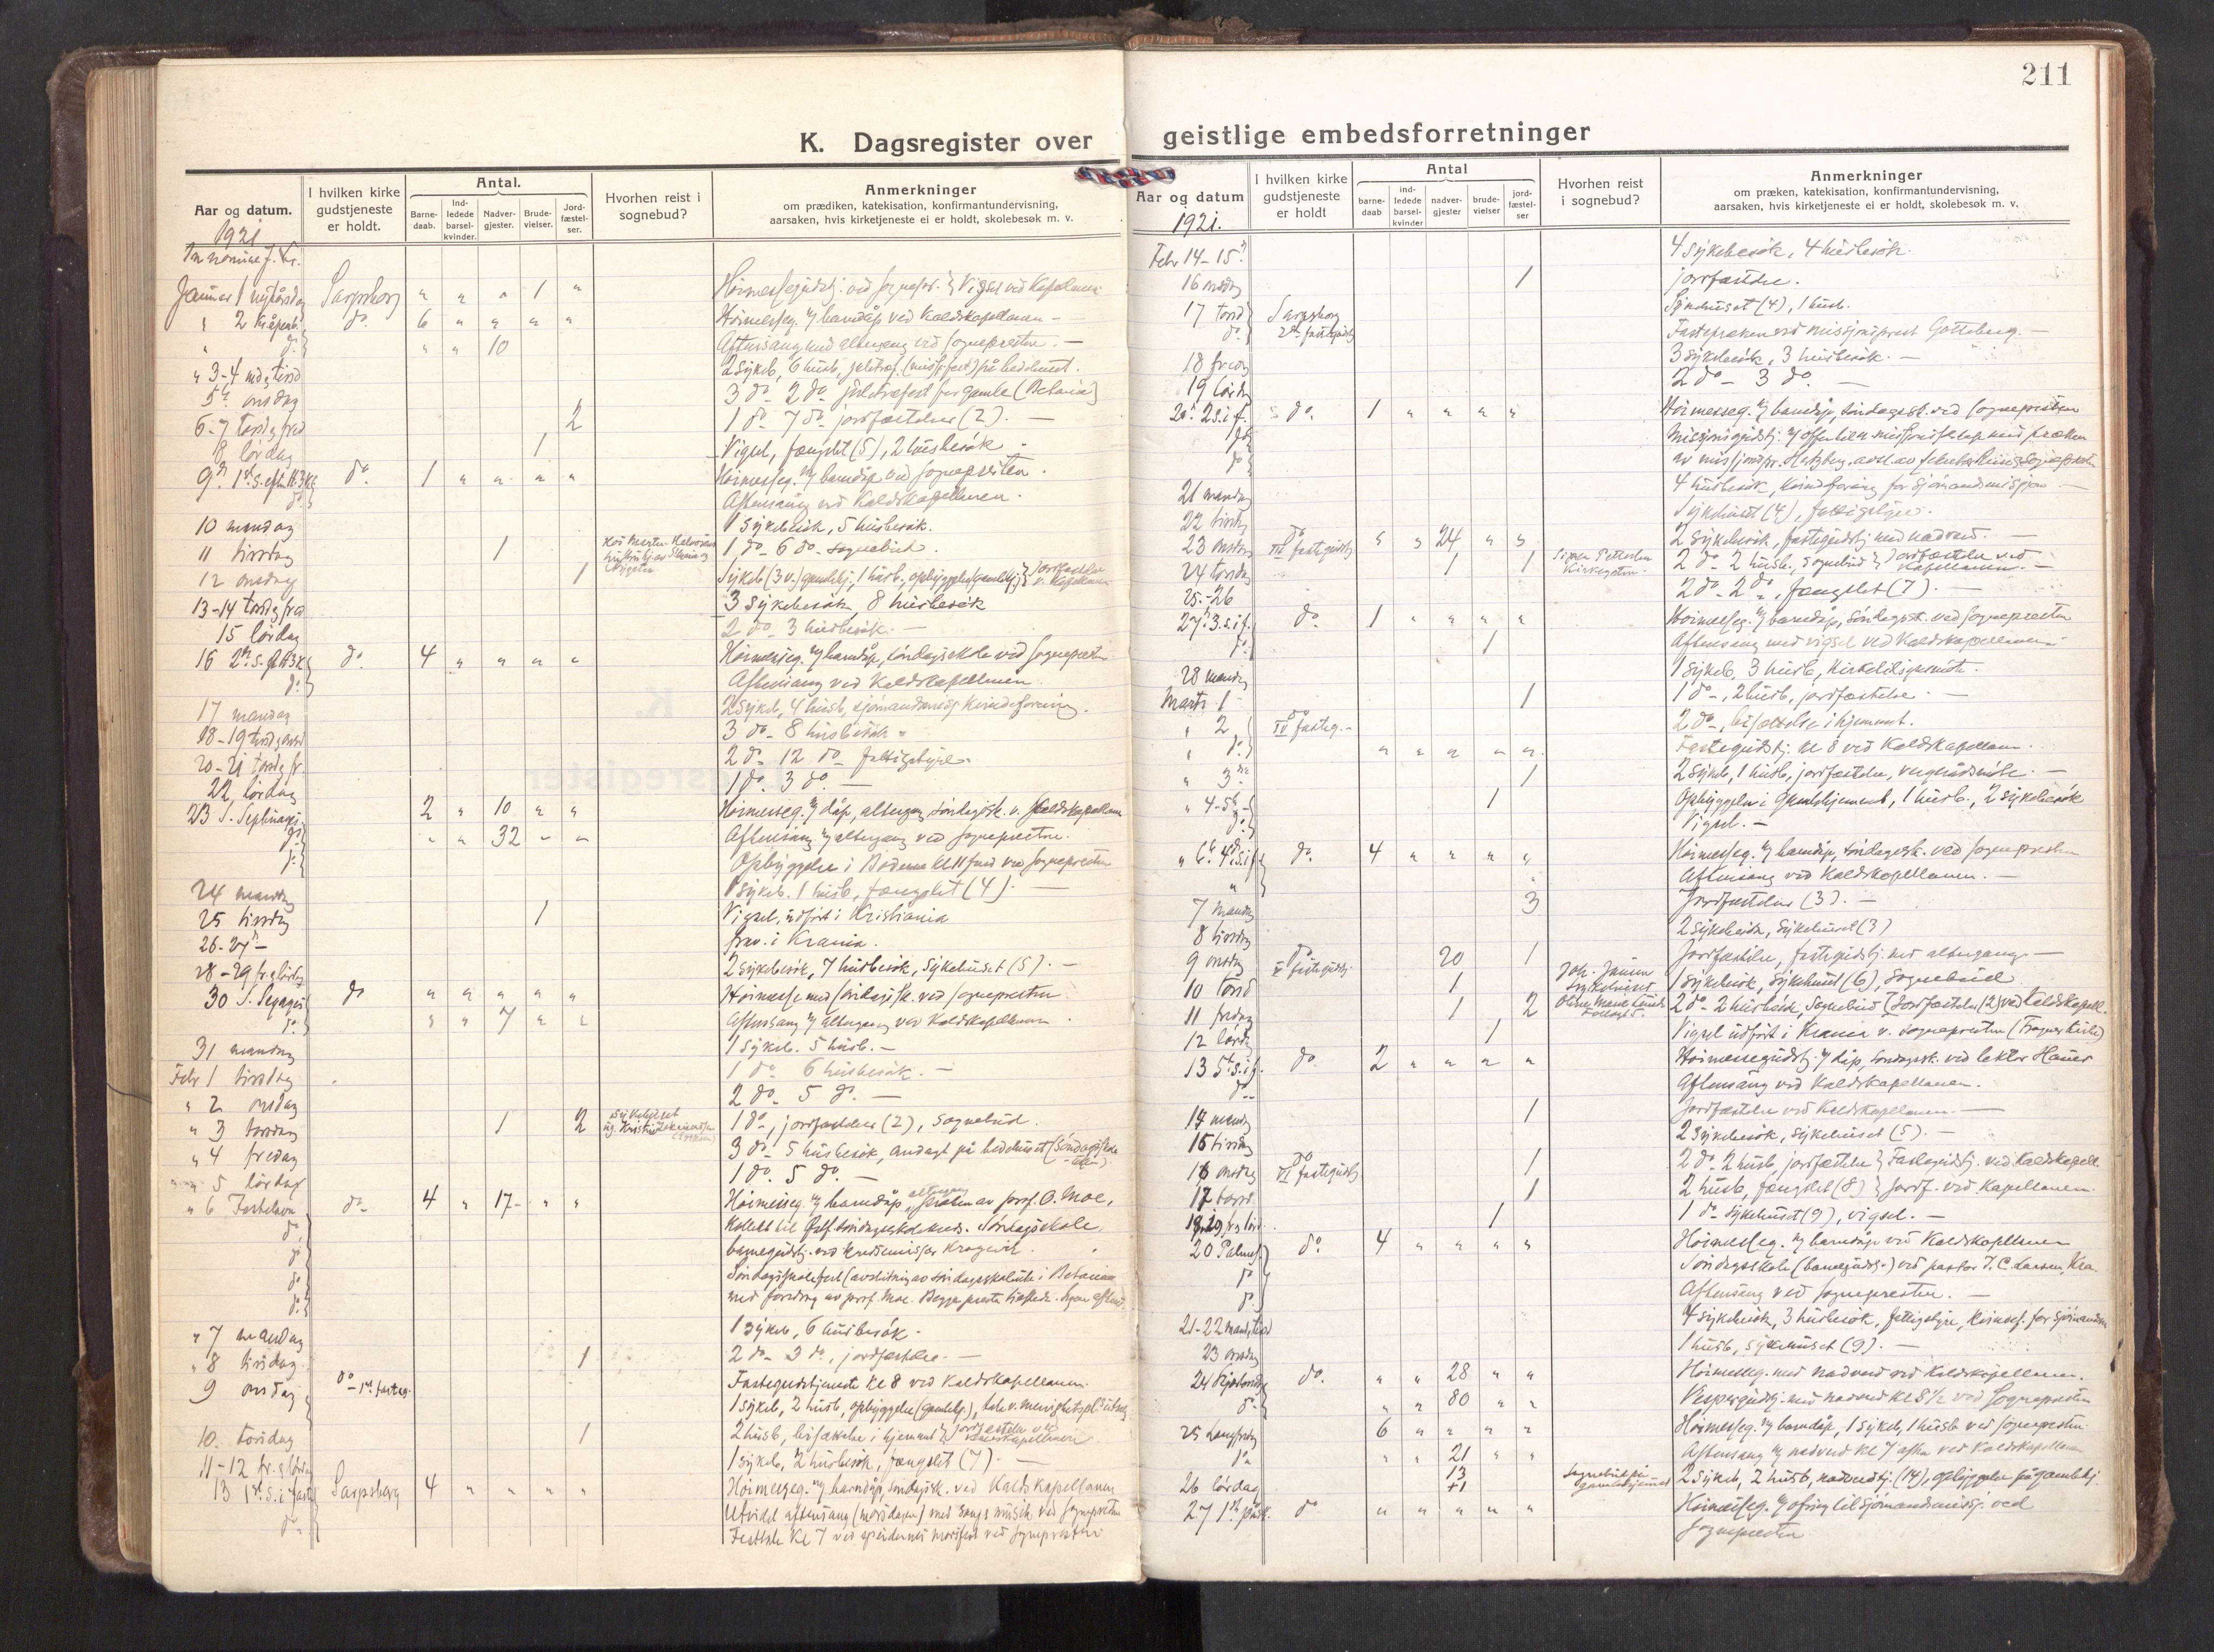 211
K. Dagsregister over geistlige embedsforretninger
Aar og datum.
I hvilken kirke gudstjeneste er holdt.
Antal.
Barne-daab.
Ind-ledede barsel-kvinder.
Nadver-gjester.
Brude-vielser.
Jord-fæstel-ser.
Hvorhen reist i sognebud?
Anmerkninger
om prædiken, katekisation, konfirmantundervisning,
aarsaken, hvis kirketjeneste ei er holdt, skolebesøk m. v.
1921
In nomine J. Kr.
Januar 1 nytårsdag Sarpsborg " " " 1 " Høimessegudstj. ved sognepr. Vigsel ved Kapellanen
" 2 do. 6 " " " " Høimesseg. m/ barndåp ved Kaldskapellanen -
" do. " " 10 Aftensang med altergang ved sognepresten. -
" 3-4 md. tirsd 2 sykeb, 6 husb, på bedehuset.
5t. onsdag 3 do 2 do juletræfest for gamle (Betania)
6-7 torsd. fred 2 1 do 7 do jordfæstelser (2). -
8 lørdag 1 Vigsel, fængslet (5), 2 husbesøk -
9de 1st S. do. 1 " " " " Høimesseg. m/ barndåp ved sognepresten.
do. Aftensang ved Kaldskapellanen.
10 mandag 1 sykebesøk, 5 husbesøk.
11 tirsdag 1 1 do 6 do. sognebud.
12 onsdag 1 jordfæstelse v. Kapellanen
13-14 torsd. fred 3 sykebesøk, 8 husbesøk
15 lørdag 2 do 3 husbesøk. -
16 2n. S. do. 4 " " " " Høimesseg. m/ barndåp, søndagsskole ved sognepresten
do. Aftensang ved Kaldskapellanen
17 mandag 2 sykeb, 4 husb, kvindeforening.
18-19 tirsd. onsd 3 do 8 husbesøk "
20-21 torsd. fr. 2 do 12 do fattigstyre.
22 lørdag 1 do. 3 do. -
23 S. Septuages. 2 " 10 " " Høimesseg. m/ dåp, altergang, søndagssk. v. Kaldskapellanen
do. " " 32 " " Aftensang m/ altergang ved sognepresten.
do. Opbyggelse i Kl 11 ved sognepresten
24 mandag 1 sykeb. 1 husb, fængslet (4). -
25 tirsdag 1 Vigsel, utført i Kristiania
26-27 - frav. i Krania.
28-29 fr. lørdag 2 sykebesøk, 7 husbesøk, Sykehuset (5). -
30 S. do " " " " " Høimesse med søndagssk. ved sognepresten
do. " " 7 " " Aftensang m/ altergang ved Kaldskapellanen
31 mandag 1 sykeb. 5 husb. -
Febr 1 tirsdag 1 do 6 husbesøk. -
" 2 onsdag 2 do. 5 do. -
" 3 torsdag 1 2 Sykehuset 1 do, jordfæstelser (2), sognebud.
" 4 fredag 3 do 5 husbesøk, andagt på bedehuset
" 5 lørdag 1 do. 5 do. -
" 6 Fastelavn do 4 " 17 " " Høimesseg. m/ barndåp, altergang præken av prof. O. Moe,
do. Søndagsskole,
do barnegudstj. ved Krogevik.
do Søndagsskolefest i Betania
do. med foredrag av prof. Moe.
" 7 mandag 1 sykeb, 6 husbesøk.
" 8 tirsdag 1 2 do 3 do, jordfæstelse. -
9 onsdag do 1st fasteg. Fastegudstjeneste Kl 8 ved Kaldskapellanen.
1 sykeb, 2 husb, opbyggelse (gamlehj.),
10. torsdag 1 2 husb, bisættelse i hjemmet jordfæstelse ved Kaldskapellanen
11-12 fr. lørdag 1 sykeb, 2 husbesøk, fængslet (7). -
13 1st S. i faste Sarpsborg 4 " " " " Høimesseg. m/ barndåp, søndagssk. ved Kaldskapellanen
do. Utvidet aftensang (morsdagen) med sang & musik ved sognepresten
Festtale Kl 7 ved morsfest ved sognepresten
Aar og datum
I hvilken kirke gudstjeneste er holdt
Antal
barne-daab
ind-ledede barsel-kvinder
nadver-gjester
brude-vielser
jord-fæstel-ser
Hvorhen reist i sognebud?
Anmerkninger
om præken, katekisation, konfirmantundervisning,
aarsaken, hvis kirketjeneste ei er holdt, skolebesøk m. v.
1921.
Febr 14-15 4 sykebesøk, 4 husbesøk.
16 onsdag 1 jordfæstelse.
17 torsd Sarpsborg Sykehuset (4), 1 husb.
do. 2den fastegudstj Fastepræken ved missjonsprest -
18 fredag 3 sykebesøk, 3 husbesøk. -
19 lørdag 2 do - 3 do. -
20. 2 S. i f. do. 1 " " " " Høimesseg. m/ barndåp, søndagssk. ved sognepresten
do
do
21 mandag 4 husbesøk, kvindeforening for sjømandsmisjon -
22 tirsdag Sykehuset (4), fattigstyre.
23 onsdag do III fastegudstj " " 24 " " 2 sykebesøk, fastegudstj med nadverd. -
24 torsdag 1 1 Kirkegaten. 2 do 2 husb., sognebud jordfæstelse ved Kapellanen. -
25-26 2 do 2 do, fængslet (7). -
27. 3. s. i f. do. 1 " " " " Høimesseg. m/ barndåp, søndagssk. ved sognepresten
do. 1 Aftensang med vigsel ved Kaldskapellanen.
28 mandag 1 sykeb, 3 husb,
Marts 1 1 1 do, 2 husb, jordfæstelse. -
" 2 do IV fasteg. - 2 do, bisættelse i hjemmet.
" do. " " " " " Fastegudstj. Kl 8 ved Kaldskapellan.
" 3 1 2 sykeb, 1 husb, jordfæstelse, vergerådsmøte. -
" 4-5 1 Opbyggelse i gamlehjemmet, 1 husb., 2 sykebesøk
do. Vigsel. -
" 6. 4. S. i f. do. 4 " " " " Høimesseg. m/ barndåp, søndagssk. ved sognepresten
" Aftensang ved Kaldskapellanen. -
7 mandag 3 Jordfæstelser (3). -
8 tirsdag 2 sykebesøk, Sykehuset (3)
9 onsdag do V fastegudstj. 20 1 Jordfæstelse, fastegudstj. med altergang. -
10 torsd 1 Joh. Jansen Sykehuset 1 sykebesøk, Sykehuset (6), Sognebud
11 fredag 1 2 2 do 2 husbesøk, Sognebud Jordfæstelser (2) ved Kaldskapell.
12 lørdag 1 Vigsel utført i Krania v. Sognepresten
13 5te s. i f. do. 2 " " " " Høimessegudstj. m/ dåp, søndagssk. ved lektor
do. Aftensang ved Kaldskapellanen.
14 mandag 1 Jordfæstelse ved Kaldskapellanen. -
15 tirsdag 2 sykebesøk, Sykehuset (5). -
16 onsdag do VI fastegudstj. 1 2 do 2 husb, jordfæstelse Fastegudstj. ved Kaldskapell.
17 torsd 1 2 husb, fængslet (8) Jordf. ved Kapellanen.
18, 19 fr. lørd 1 1 do Sykehuset (9), vigsel. -
20 Palmes. do. 4 " " " " Høimesseg. m/ barndåp ved Kaldskapellanen
do Søndagsskole (barnegudstj.) ved pastor T. C. Larsen, Kra.
do. Aftensang ved Sognepresten. -
21-22 mand. tirsd 4 sykebesøk, 3 husbesøk, fattigstyre,
23 onsdag 1 husb, sykehuset (9). -
24 Skjærtorsdag do. " " 28 " " Høimesseg. med nadverd ved Kaldskapellanen.
do. " " 80 " " Vespergudstj. med nadverd Kl 8½ ved Sognepresten
25 Langfredag 6 " " " " Høimesseg. m/ barndåp, 1 sykeb, 1 husb ved sognepresten.
do " " 21 " " Aftensang m/ nadverd Kl 7 aften ved Kaldskapellan
26 lørdag 13 +1 2 sykeb, 2 husb, opbyggelse på gamlehj.
27 1st påsk. do " " " " " Høimesseg. m/ ofring til sjømandsmissj. ved
Sognepresten.